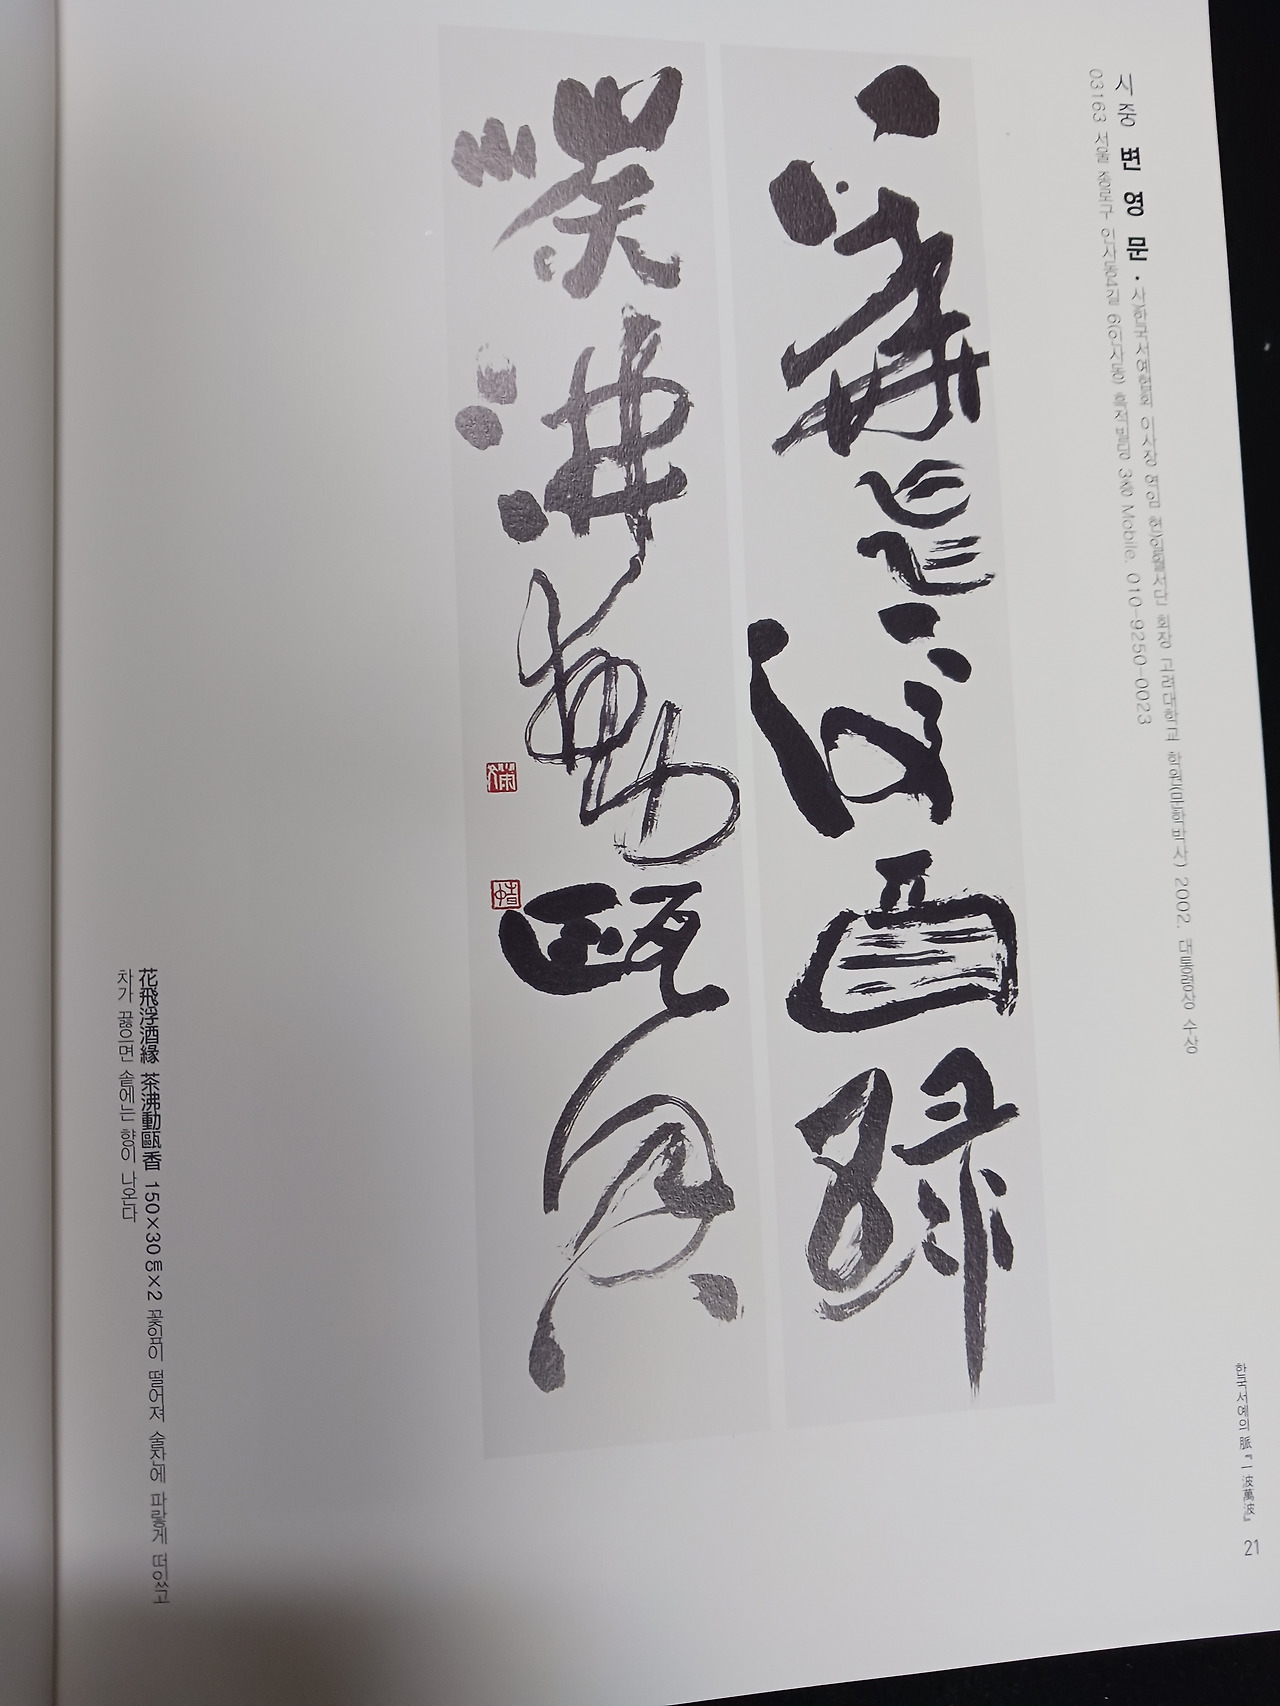 시중 변영문 · 사)한국서예협회 이사장 역임 회장 고려대학교 학원(문학박사) 2002. 대통령상 수상
03163 서울 종로구 인사동4길 6(인사동) 3층 Mobile. 010-9250-0023
花飛浮酒綠
茶沸動甌香
花飛浮酒緣 茶沸動甌香 150×30㎝×2 꽃잎이 떨어져 술잔에 파랗게 떠있고
차가 끓으면 솥에는 향이 나온다
한국서예의 脈『一波萬波』 21